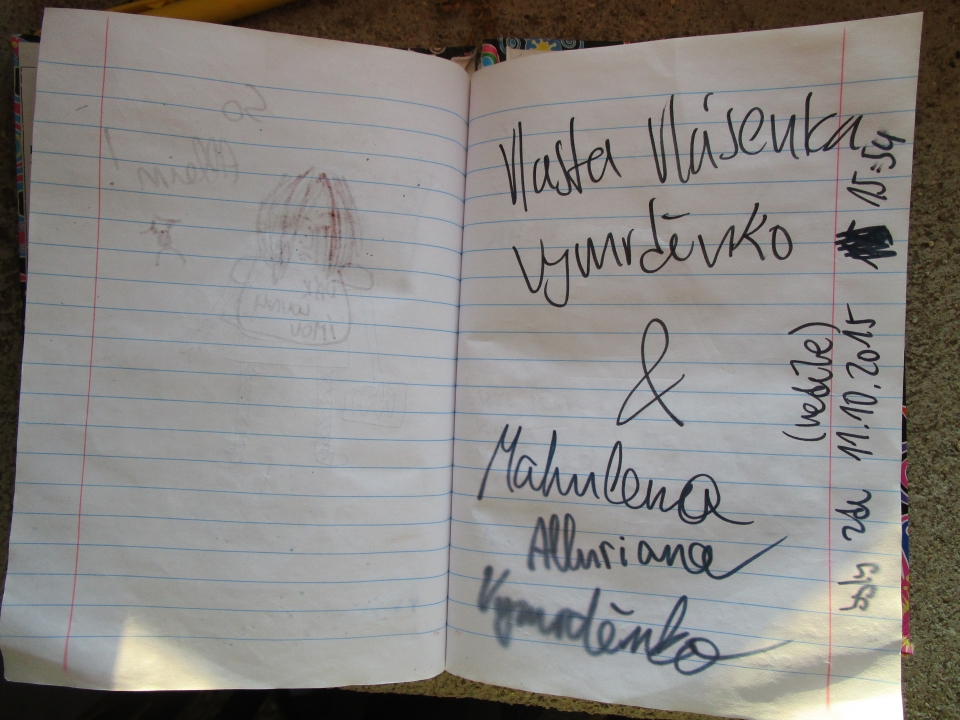 Vlasta Vlásenka
Vymrděnko
&
Mahulena
Alluriana
Vymrděnko
byly zde 11.10.2015 15:54
(vedle)